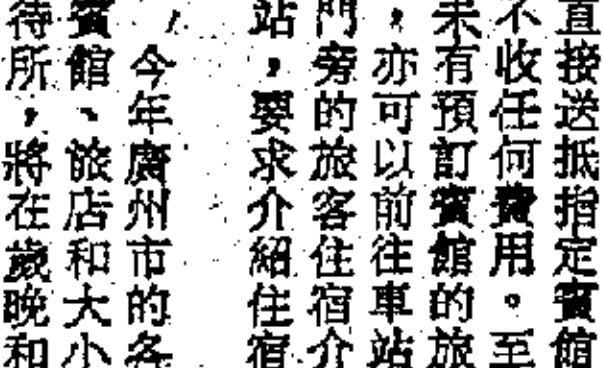 直接送抵指定賓館
不收任何費用。至
未有預訂賓館的旅
，亦可以前往車站
門旁的旅客住宿介
站，要求介紹住宿
今年廣州市的各
賓館、旅店和大小
待所，將在歲晚和